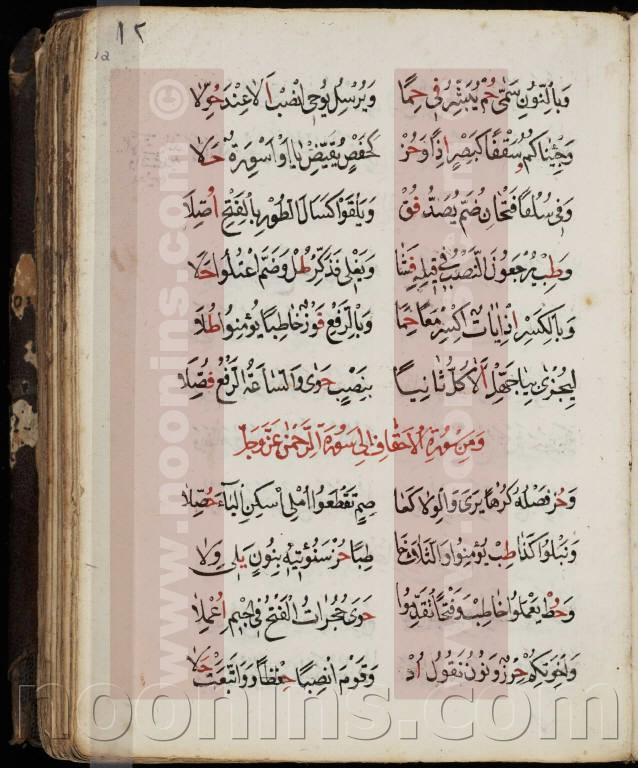 ١٢
12
وَبِالنُّونِ سَمَّى حُمْ يُبَشِّرُ فِي حِمًا وَيُرْسِلُ يُوحِي انْصِبْ أَلَا عِنْدَ حُوِّلَا
وَجِئْنَاكُمْ وَسَقْفًا كَبَصْرٍ إِذًا وَحُزْ كَحَفْصٍ نُقَيِّضْ يَا وَأَسْوِرَةٌ حَلَا
وَفِي سُلُفًا فَتْحَانِ ضُمَّ يَصُدُّ فُقْ وَيَلْقَوْا كَسَالَ الطُّورِ بِالْفَتْحِ أُصِّلَا
وَطِبْ يُرْجَعُونَ النَّصْبُ فِي قِيلِهِ فَشَا وَيَغْلِي فَذَكِّرْ طُلْ وَضَمَّ اعْتُلُوا حَلَا
وَبِالْكَسْرِ إِذْ آيَاتٌ اكْسِرْ مَعًا حِمًا وَبِالرَّفْعِ فَوْزٌ خَاطِبًا يُؤْمِنُوا طُلَا
لِيُجْزَى بِيَا جَهْلٍ أَلَا كُلُّ ثَانِيًا بِنَصْبٍ حَوَى وَالسَّاعَةُ الرَّفْعُ فُصِّلَا
وَمِنْ سُورَةِ الْأَحْقَافِ إِلَى سُورَةِ الرَّحْمٰنِ عَزَّ وَجَلَّ
وَحُزْ فَصْلُهُ كُرْهًا يَرَى وَالْوِلَا كَعَا صِمٍ تَقْطَعُوا أُمْلِي اسْكِنِ الْيَاءَ حُصِّلَا
وَنَبْلُوَا كَذَا طِبْ يُؤْمِنُوا وَالثَّلَاثَ خَا طِبًا حُزْ سَنُؤْتِيهِ بِنُونٍ يَلِي وِلَا
وَحُطْ يَعْمَلُوا خَاطِبْ وَفَتْحًا تَقَدَّمُوا حَوَى حُجُرَاتُ الْفَتْحُ فِي الْجِيمِ أُعْمِلَا
وَإِخْوَتِكُمْ حِرْزٌ وَنُونُ نَقُولُ أُدْ وَقَوْمَ انْصِبًا حِفْظًا وَوَاتَّبَعَتْ حَلَا
www.noonins.com
www.noonins.com
noonins.com